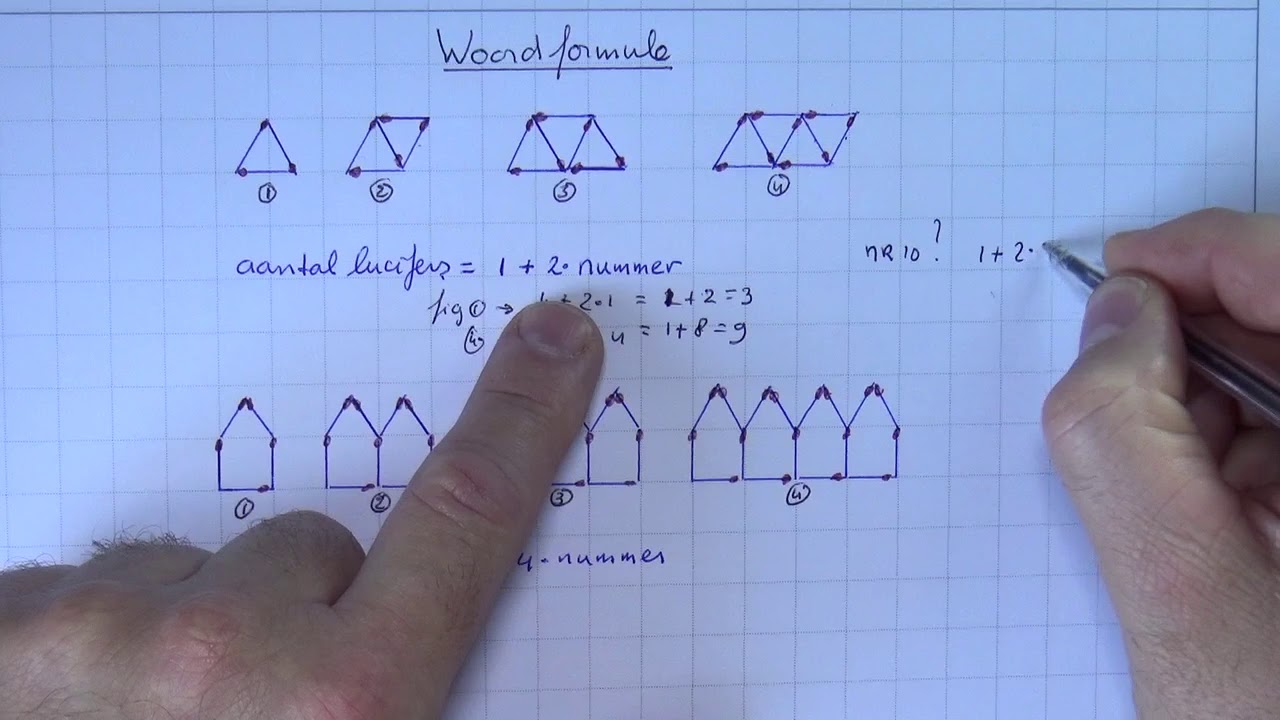 Woordformule
① ② ③ ④
nR 10 ? 1 + 2 ·
aantal lucifers = 1 + 2 · nummer
fig ① → 1 + 2 · 1 = 1 + 2 = 3
④ 4 = 1 + 8 = 9
① ② ③ ④
4 · nummer